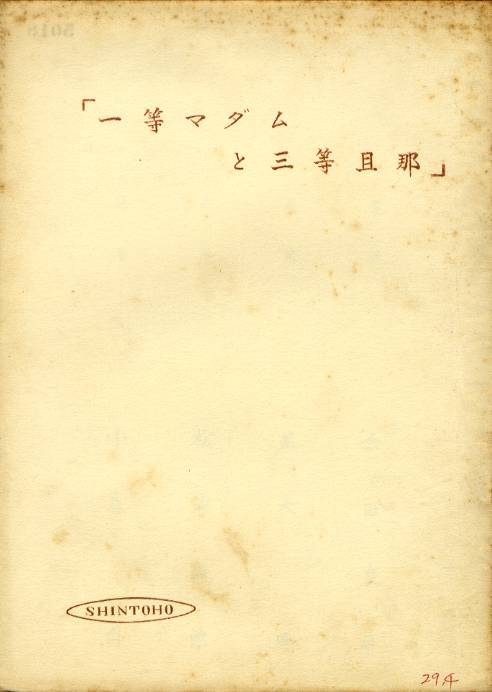 「一等マダム
と三等旦那」
SHINTOHO
29.4